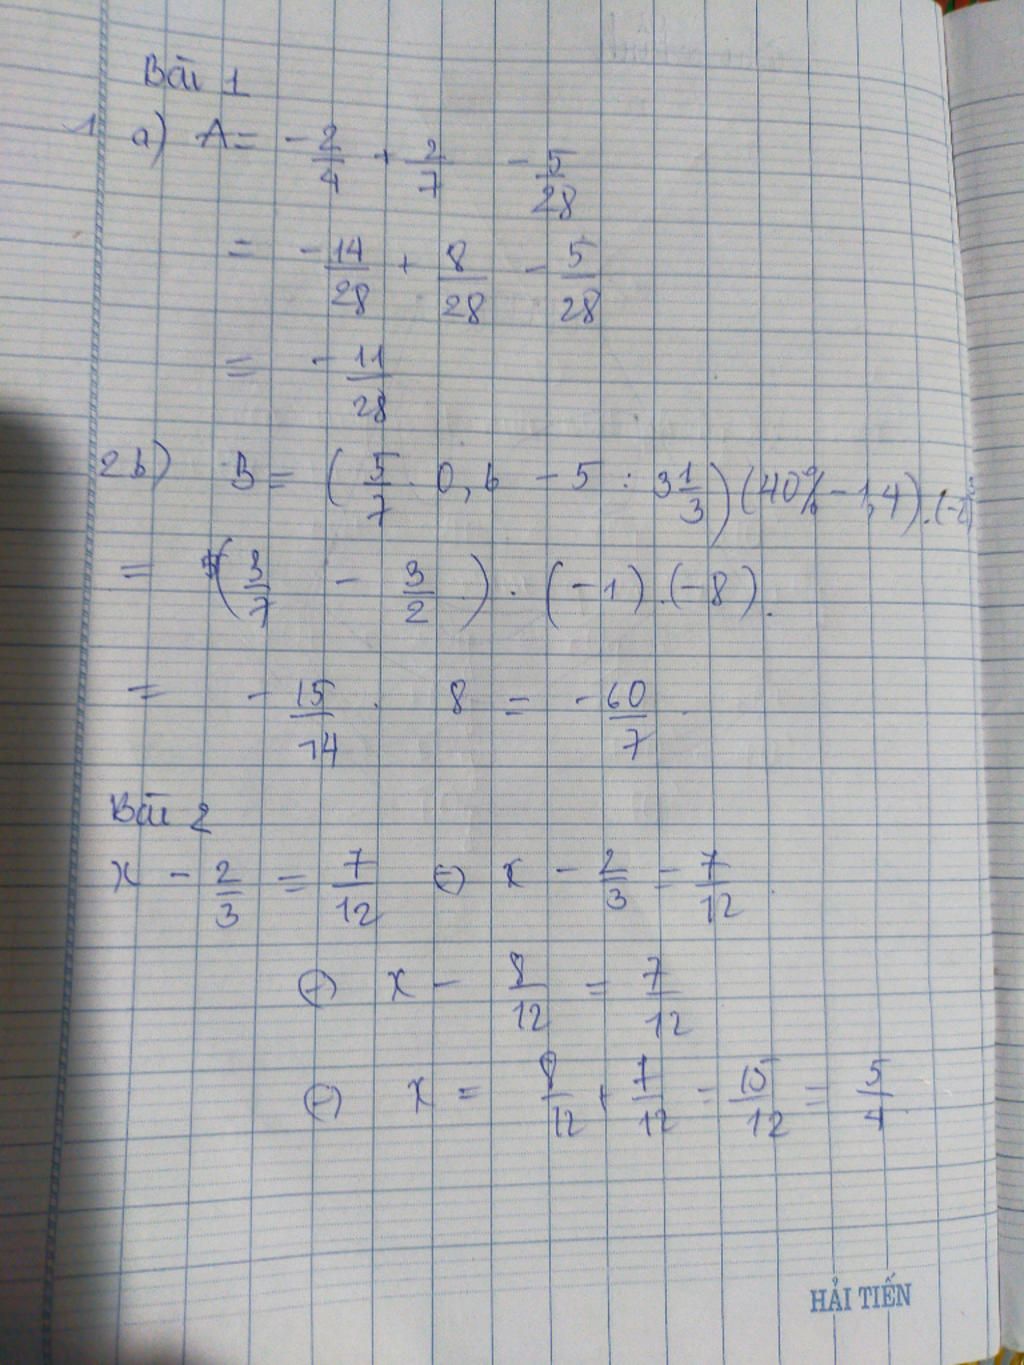 Bài 1
1 a) A = - 2/4 + 2/7 - 5/28
= - 14/28 + 8/28 - 5/28
= - 11/28
2b) B = ( 5/7 . 0,6 - 5 : 3 1/3 ) (40% - 1,4) . (-2)³
= ( 3/7 - 3/2 ) . (-1) . (-8).
= - 15/14 . 8 = - 60/7
Bài 2
x - 2/3 = 7/12 ⇔ x - 2/3 = 7/12
⇔ x - 8/12 = 7/12
⇔ x = 8/12 + 7/12 = 15/12 = 5/4
HẢI TIẾN